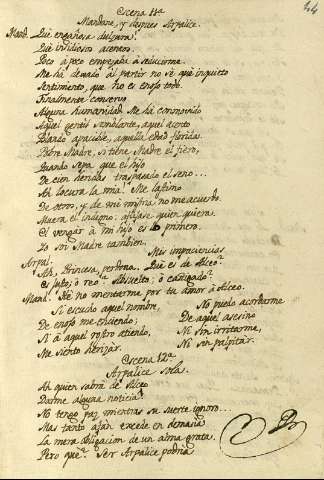 44
Escena 11ª
Mandane, y despues Arpalice.
Mand. Què engañosa dulzura!
Què insidioso acento!
Poco a poco empezaba à seducirme.
Me ha dexado al partir no sé què inquieto
Sentimiento, que no es enojo todo.
Finalmente conservo
Alguna humanidad. Me hà conmovido
Aquel gentil semblante, aquel acento
Blando apacible, aquella edad florida.
Pobre Madre, si tiene Madre el fiero,
Quando sepa que el hijo
De cien heridas traspasado el seno...
Ah locura la mia! Me lastimo
De otros, y de mi misma no me acuerdo.
Muera el indigno, aflijase quien quiera.
El vengar à mi hijo es lo primero.
Yo soi Madre tambien.
Arpal. Mis impaciencias
Ah, Princesa, perdona. Què es de Alceo?
Es Juez, ò reo? Absuelto, ò castigado?
Mand. No, no mentarme por tu amor à Alceo.
Si escucho aquel nombre,
De enojo me enciendo;
Si à aquel rostro atiendo,
Me siento herizar.
No puedo acordarme
De aquel asesino
Ni sin irritarme,
Ni sin palpitar.
Escena 12ª
Arpalice sola.
Ah quien sabrà de Alceo
Darme alguna noticia?
No tengo paz mientras su suerte ignoro...
Mas tanto afan excede en demasia
La mera obligacion de un alma grata.
Pero què? Serr Arpalice podria